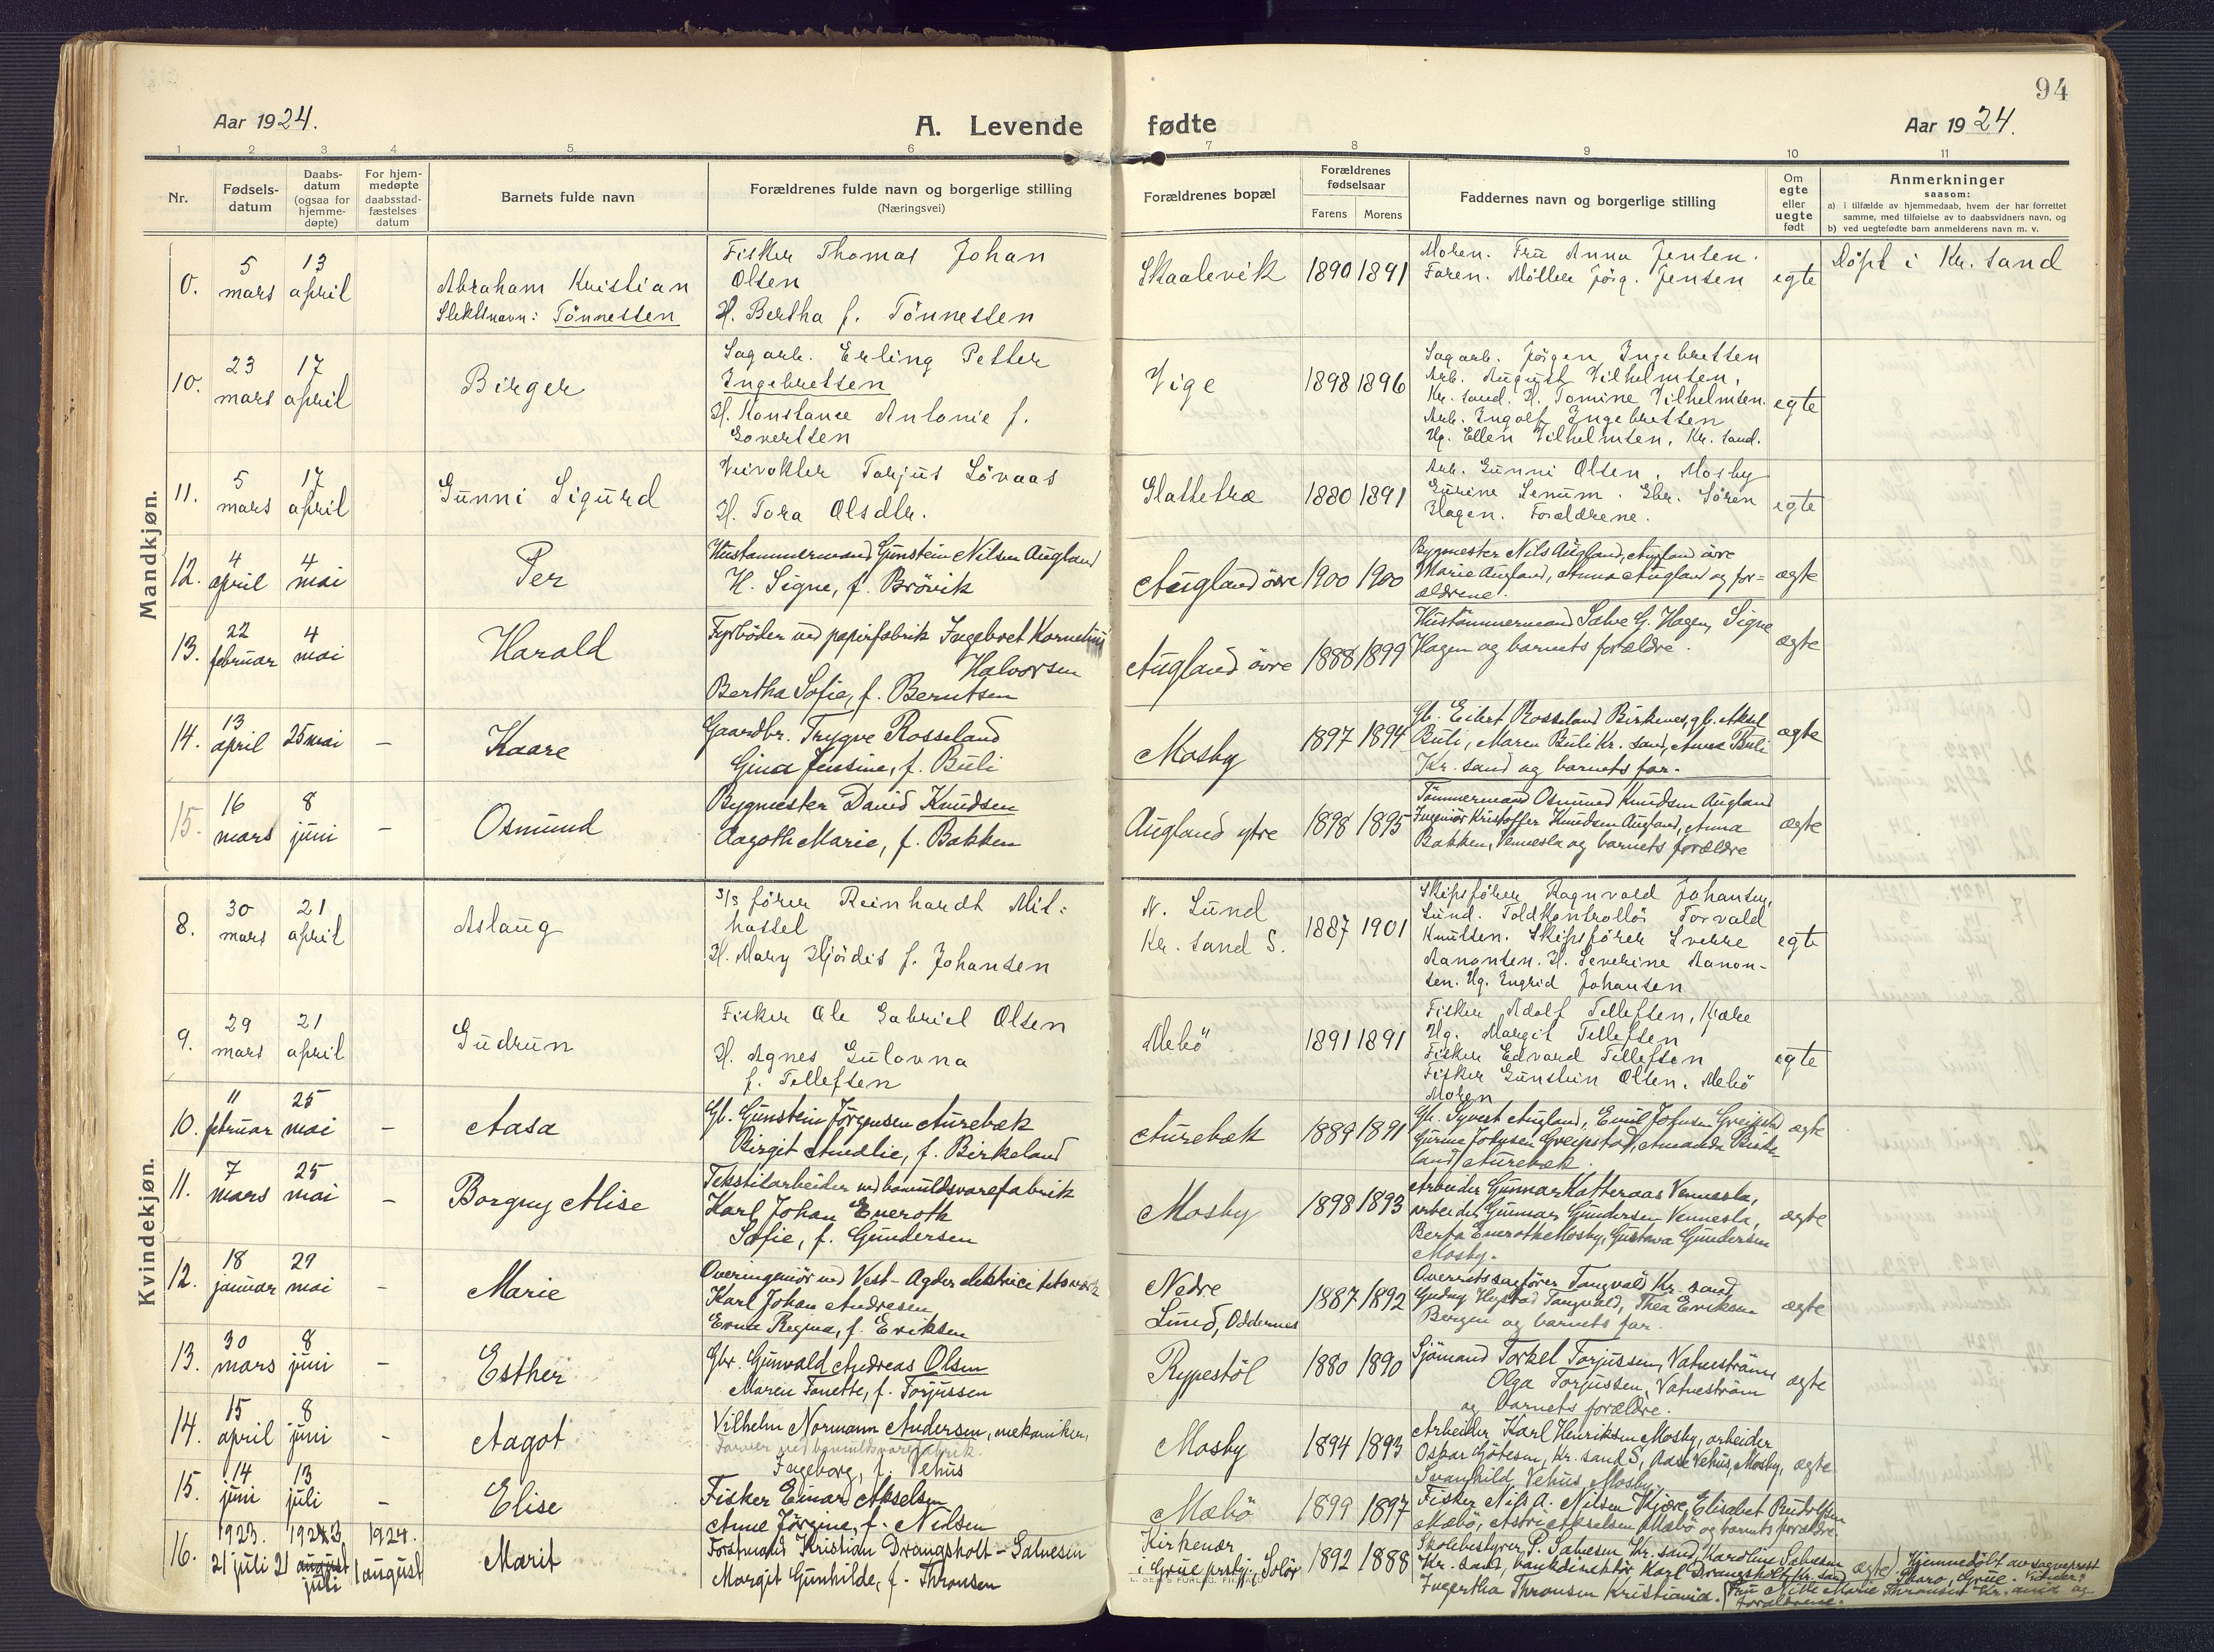 94
Aar 1924.
A. Levende fødte
Aar 1924.
1 2 3 4 5 6 7 8 9 10 11
Nr.
Fødsels-
datum
Daabs-
datum
(ogsaa for
hjemme-
døpte)
For hjem-
medøpte
daabsstad-
fæstelses
datum
Barnets fulde navn
Forældrenes fulde navn og borgerlige stilling
(Næringsvei)
Forældrenes bopæl
Forældrenes
fødselsaar
Farens Morens
Faddernes navn og borgerlige stilling
Om
egte
eller
uegte
født
Anmerkninger
saasom:
a) i tilfælde av hjemmedaab, hvem der har forrettet
samme, med tilføielse av to daabsvidners navn, og
b) ved uegtefødte barn anmelderens navn m. v.
Mandkjøn.
5 mars
13 april
Abraham Kristian
Slektsnavn: Tönnessen
Fisker Thomas Johan
Olsen
H. Bertha f. Tönnessen
Skaalevik
1890 1891
Moren. Fru Anna Jensen.
Faren. Möller Jörg. Jensen
egte
Döpt i Kr. sand
10.
23 mars
17 april
Birger
Sagarb. Erling Petter
Ingebretsen
H. Konstance Antonie f.
Govertsen
Vige
1898 1896
Sagarb. Jörgen Ingebretsen
Arb. August Vilhelmsen,
Kr. sand. H. Tomine Vilhelmsen.
Arb. Ingolf Ingebretsen
Ug. Ellen Vilhelmsen, Kr. sand.
egte
11.
5 mars
17 april
Gunni Sigurd
Veivokter Tarjus Lövaas
H. Tora Olsdtr.
Slettetræ
1880 1891
Arb. Gunni Olsen, Mosby
Gurine Senum. Gbr. Sören
Hagen. Forældrene.
egte
12.
4 april
4 mai
Per
Hustømmermand Gunstein Nilsen Augland
H. Signe, f. Brövik
Augland övre
1900 1900
Bygmester Nils Augland, Augland övre
Marie Augland, Anna Augland og for-
ældrene.
ægte
13.
22 februar
4 mai
Harald
Fyrböder ved papirfabrik Ingebret Kornelius
Halvorsen
Bertha Sofie, f. Berntsen
Augland övre
1888 1899
Hustömmermand Salve G. Hagen, Signe
Hagen og barnets forældre.
ægte
14.
13 april
25 mai
–
Kaare
Gaardbr. Trygve Rosseland
Gina Jensine, f. Buli
Mosby
1897 1894
Gb. Eilert Rosseland Birkenes, gb. Aksel
Buli, Maren Buli Kr. sand, Anna Buli
Kr. sand og barnets far.
ægte
15.
16 mars
8 juni
–
Osmund
Bygmester David Knudsen
Aagoth Marie, f. Bakken
Augland ytre
1898 1895
Tömmermand Osmund Knudsen Augland
Ingeniör Kristoffer Knudsen Augland, Anna
Bakken, Vennesla og barnets forældre
ægte
Kvindekjøn.
8.
30 mars
21 april
Aslaug
förer Reinhardt Mit-
hassel
H. Mary Hjördis f. Johansen
N. Lund
Kr. sand S.
1887 1901
Skipsförer Ragnvald Johansen,
Lund. Toldkontrollör Torvald
Knutsen. Skipsförer Sverre
Aanonsen. H. Severine Aanon-
sen. Ug. Ingrid Johansen
egte
9.
29 mars
21 april
Gudrun
Fisker Ole Gabriel Olsen
H. Agnes Gulovna
f. Tellefsen
Mebö
1891 1891
Fisker Adolf Tellefsen, Kjære
Ug. Margit Tellefsen
Fisker Edvard Tellefsen
Fisker Gunstein Olsen, Mebö
Moren
egte
10.
11 februar
25 mai
–
Aasa
Gb. Gunstein Jörgensen Aurebæk
Birgit Amalie, f. Birkeland
Aurebæk
1889 1891
Gb. Syvert Augland, Emil Johnsen Greipstad
Gurine Johnsen Greipstad, Amanda Birke-
land Aurebæk.
ægte
11.
7 mars
25 mai
–
Borgny Alise
Tekstilarbeider ved bomuldsvarefabrik
Karl Johan Eneroth
Sofie, f. Gundersen
Mosby
1898 1893
Arbeider Gunnar Katteraas Vennesla,
arbeider Gunnar Gundersen Vennesla,
Berta Eneroth Mosby, Gustava Gundersen
Mosby.
ægte
12.
18 januar
29 mai
Marie
Overingeniör ved Vest-Agder elektricitetsverk
Karl Johan Andresen
Erna Regina, f. Eriksen
Nedre
Lund, Oddernes
1887 1892
Overretssagförer Tangvald Kr. sand,
Tangvald, Thea Eriksen
Bergen og barnets far.
ægte
13.
30 mars
8 juni
–
Esther
Gbr. Gunvald Andreas Olsen
Maren Tonette, f. Torjussen
Rypestöl
1880 1890
Sjömand Torkel Torjussen, Vatneström
Olga Torjussen, Vatneström
og barnets forældre.
ægte
14.
15 april
8 juni
–
Aagot
Vilhelm Normann Andersen, mekaniker,
ved bomuldsvarefabrik
Ingeborg, f. Vehus
Mosby
1894 1893
Arbeider Karl Henriksen Mosby, arbeider
Oskar Götesen, Kr. sand S, Aase Vehus, Mosby,
Svanhild Vehus Mosby
ægte.
15.
14 juni
13 juli
–
Elise
Fisker Einar Akselsen
Anne Jörgine, f. Nilsen
Mæbö
1899 1897
Fisker Nils A. Nilsen Kjære, Elisabet Rudolfsen
Mæbö, Astri Akselsen Mæbö og barnets forældre.
16.
1923. 21 juli
1923 21 august juli
1924. 1 august
Marit
Forstmand Kristian Drangsholt-Salvesen
Margit Gunhilde, f. Thronsen
Kirkenær
i Grue prstgj., Solör
1892 1888
Skolebestyrer P. Salvesen Kr. sand, Karoline Salvesen
Kr. sand, bankdirektör Karl Drangsholt Kr. sand
Ingertha Thronsen Kristiania.
ægte
Hjemmedöbt av sogneprest
Grue. Vidner:
Fru Marie Thronsen Kr.ania og
forældrene.